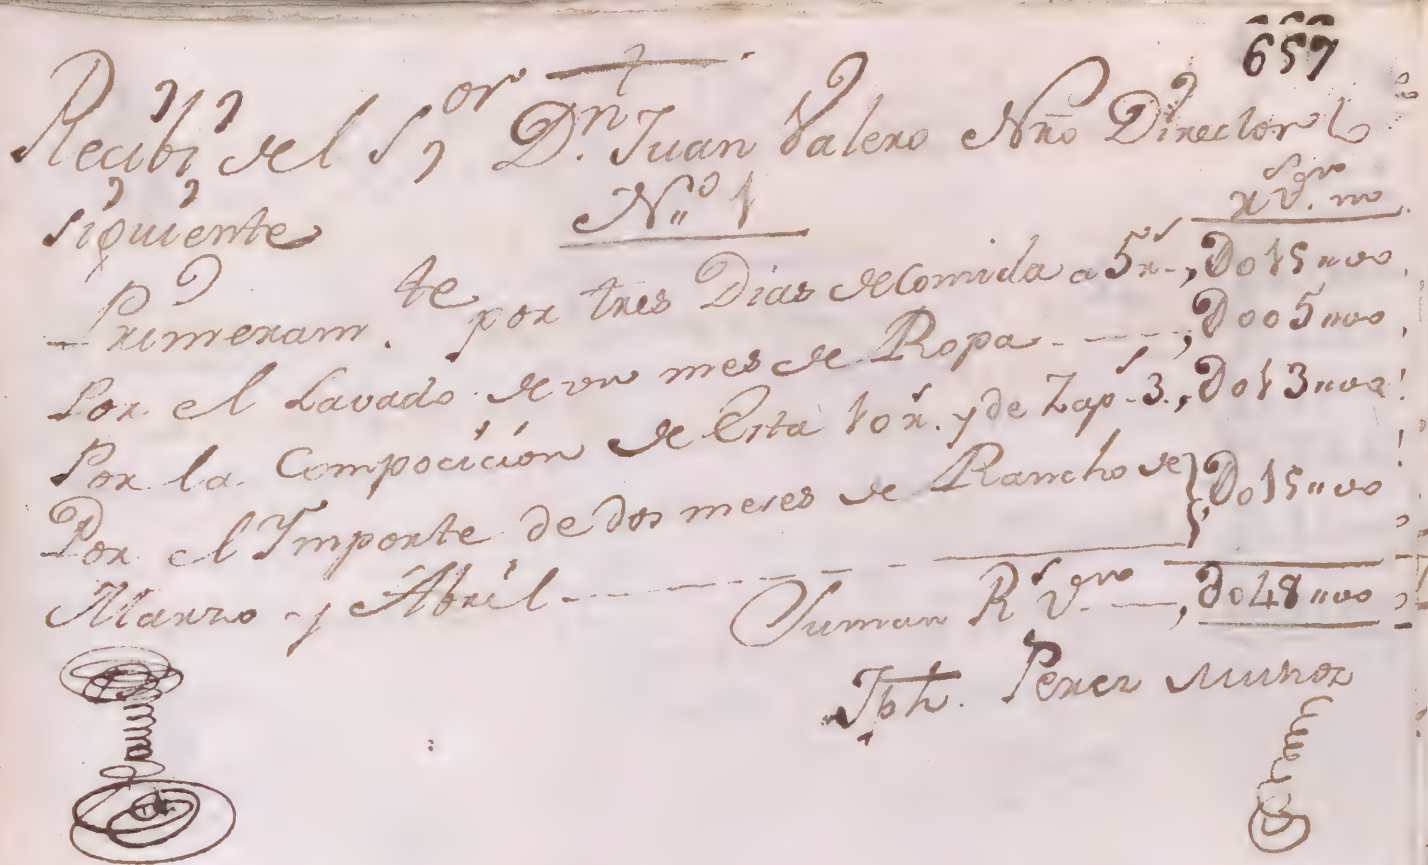 657
Recibi del Sor Dn. Juan Valero Nro Director lo
siguiente N"o 1 rs. Von. mo
Primeram.te por tres Dias de Comida a 5 rs.., D015"vo
Por el Lavado de un mes de Ropa - - - -, D005"vo
Por la Compocicion de Esta 10 rs. y de Zaps. 3., D013"vo
Por el Ymporte de dos meses de Rancho de } D015"vo
Marzo y Abril - - - - - -
Suman Rs. Von. —, D048"vo
Jph. Perez Muñoz